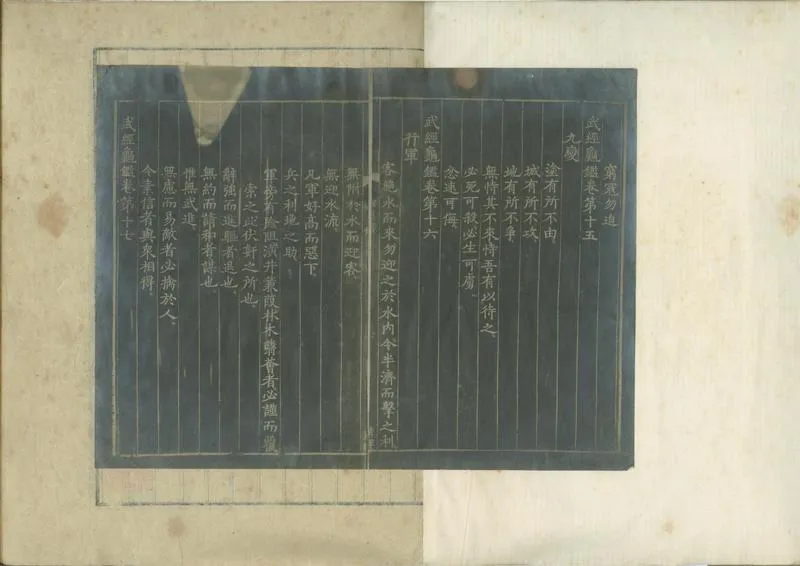 窮寇勿迫
武經龜鑑卷第十五
九變
塗有所不由
城有所不攻
地有所不爭
無恃其不來恃吾有以待之
必死可殺必生可虜
忿速可侮
武經龜鑑卷第十六
行軍
客絶水而來勿迎之於水內令半濟而擊之利
無附於水而迎客
無迎水流
凡軍好高而惡下
兵之利地之助
軍旁有險阻潢井蒹葭林木蘙薈者必謹而覆
索之此伏姧之所也
辭強而進驅者退也
無約而請和者謀也
惟無武進
無慮而易敵者必擒於人
令素信者與衆相得
武經龜鑑卷第十七